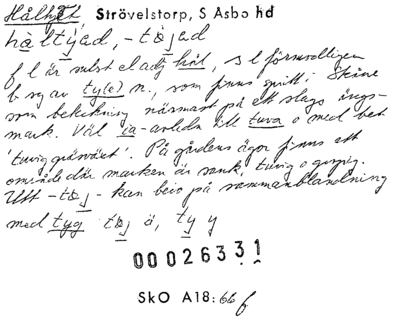 Hålhet, Strövelstorp, S Asbo hd
håltýad, -tòjad
f l är subst el adj hål, s l förmodligen
b sg av ty(e) n., som finns spritt i Skåne
som beteckning närmast på ett slags ängs-
mark. Väl ia-avledn till tuva o med bet
'tuvig gräsväxt'. På gårdens ägor finns ett
område där marken är sank, tuvig o gropig.
Utt -tòj- kan bero på sammanblandning
med tyg tòj ä, ty y
00026331
SkO A18:66 f